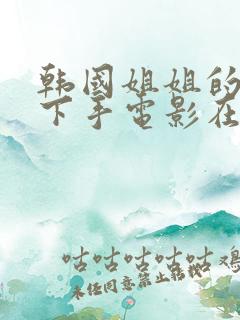 韩国姐姐的
下手电影在
咕咕咕咕咕鸡
未经同意禁止转载